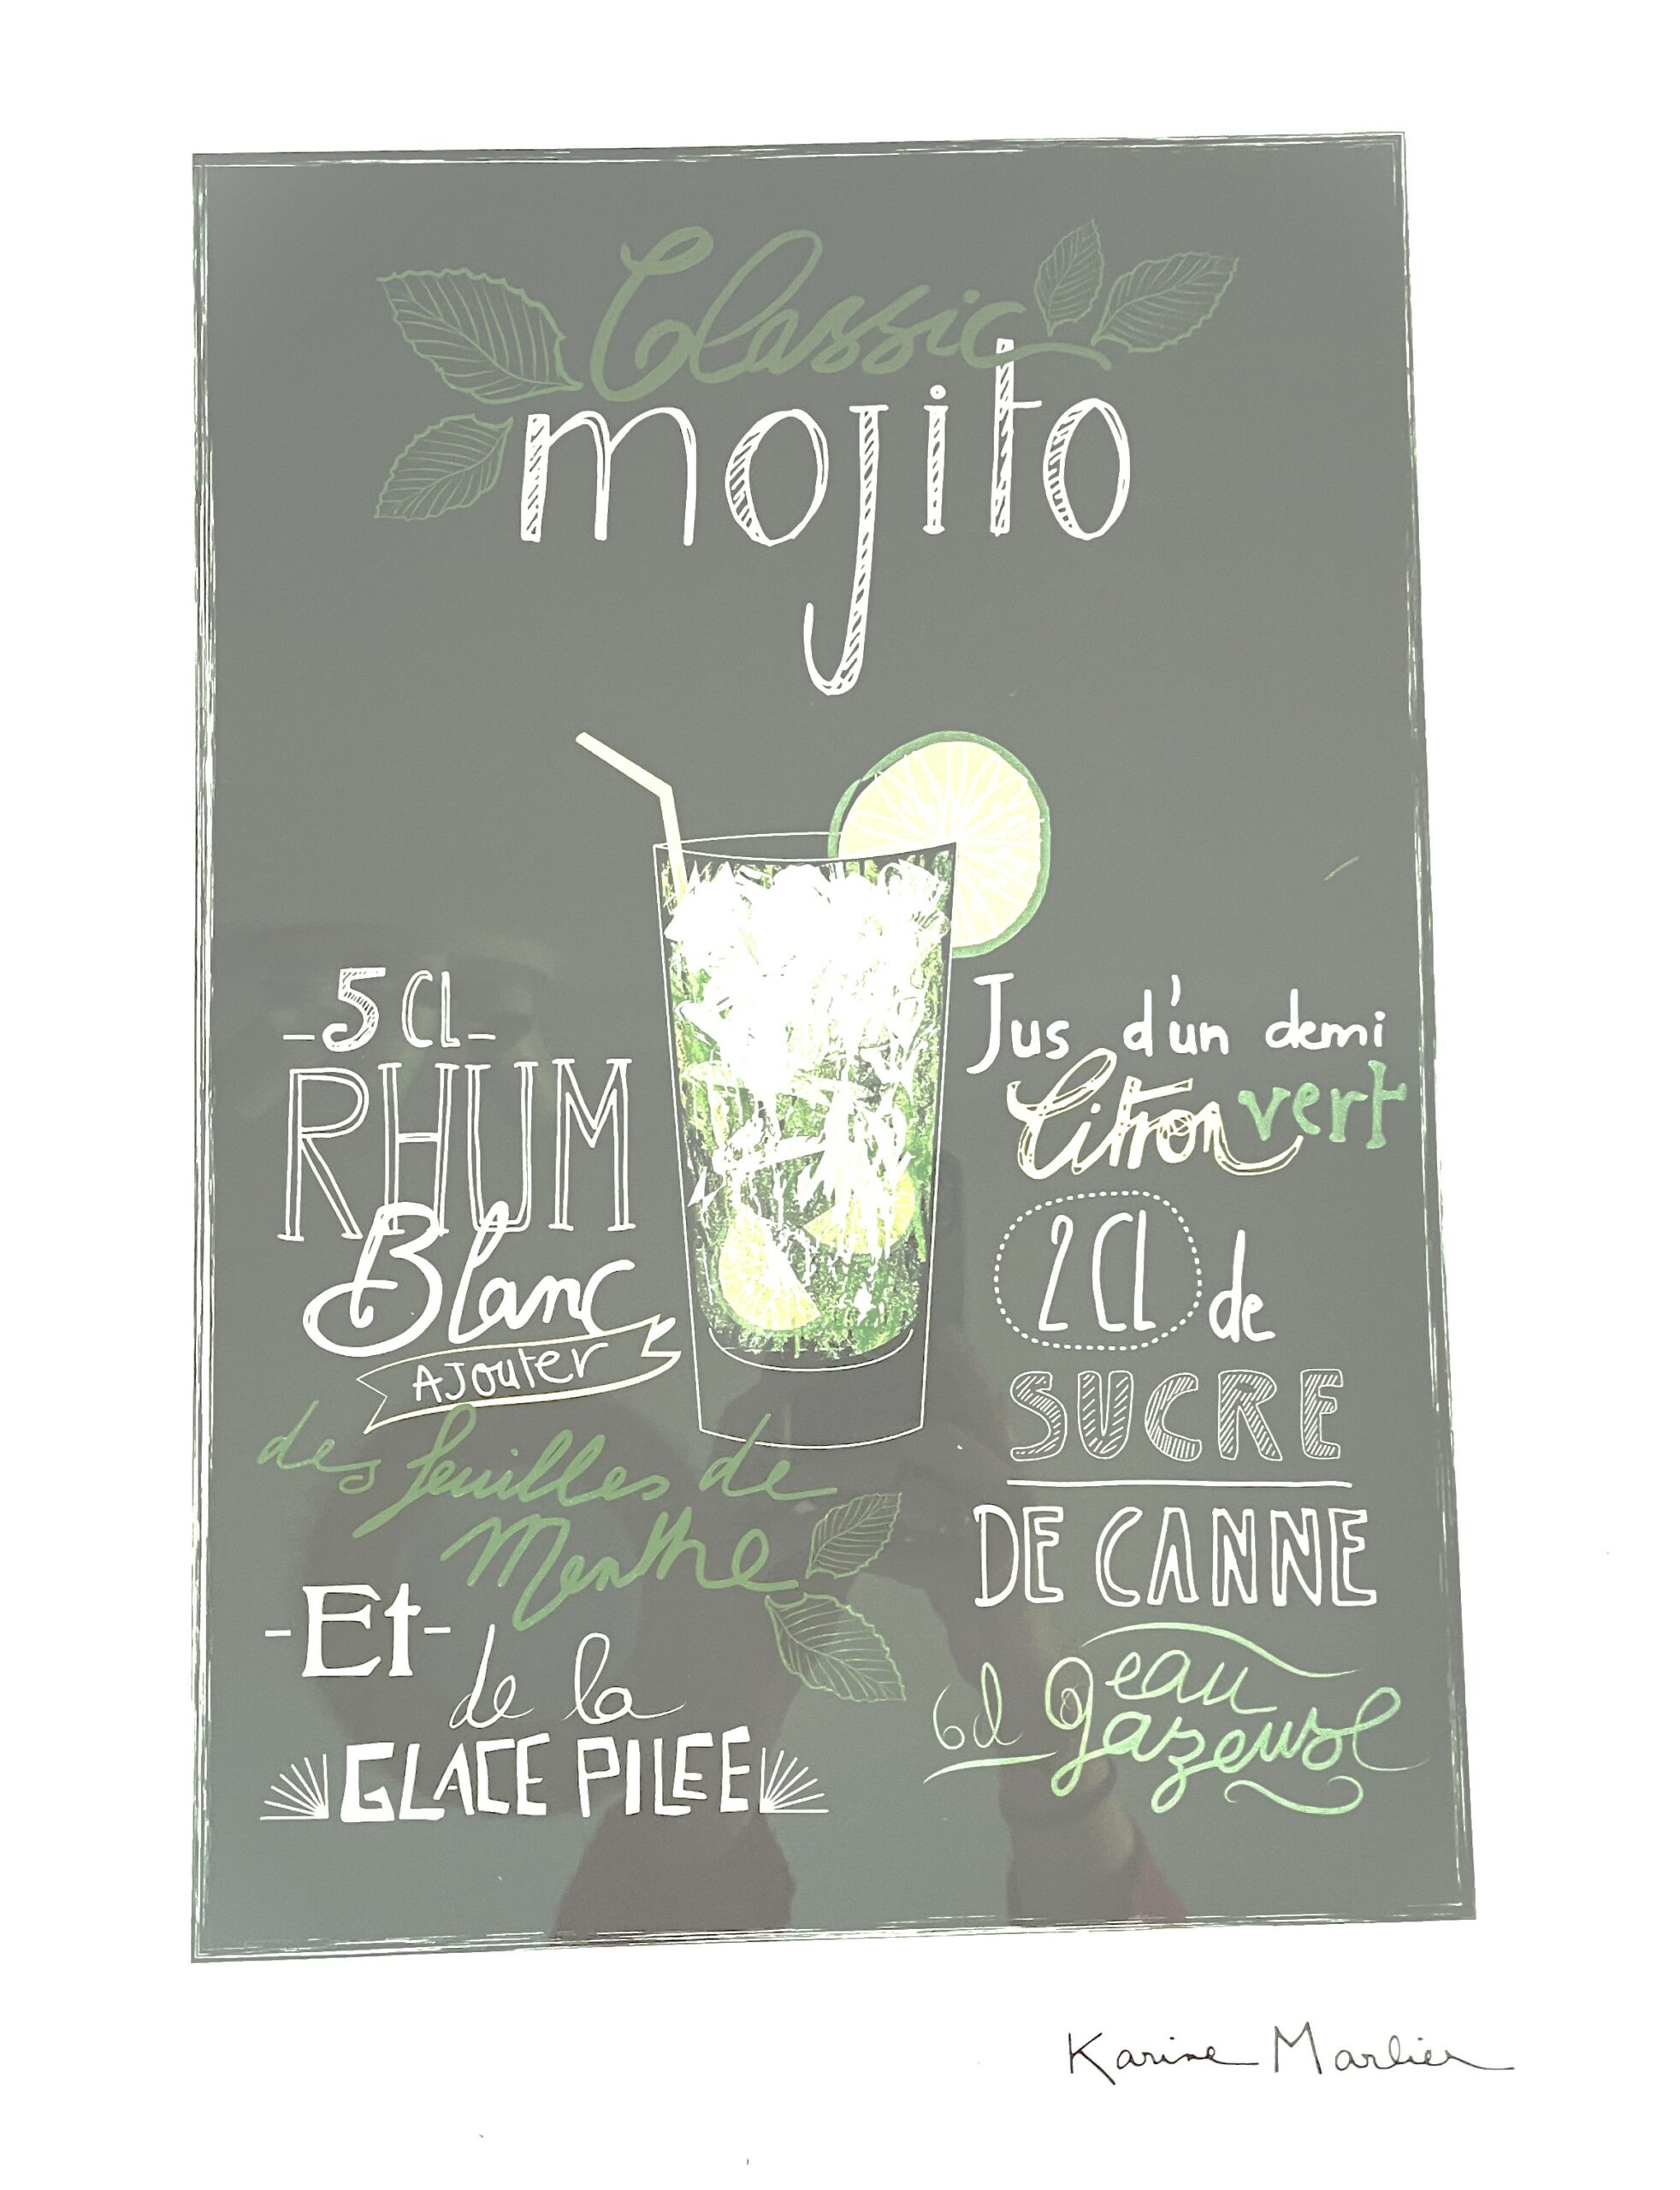 Classic
mojito
-5 Cl-
RHUM
Blanc
AJouter
des feuilles de
Menthe
-Et-
de la
GLACE PILEE
Jus d'un demi
Citron vert
2 Cl de
SUCRE
DE CANNE
6cl eau
gazeuse
Karine Marlier